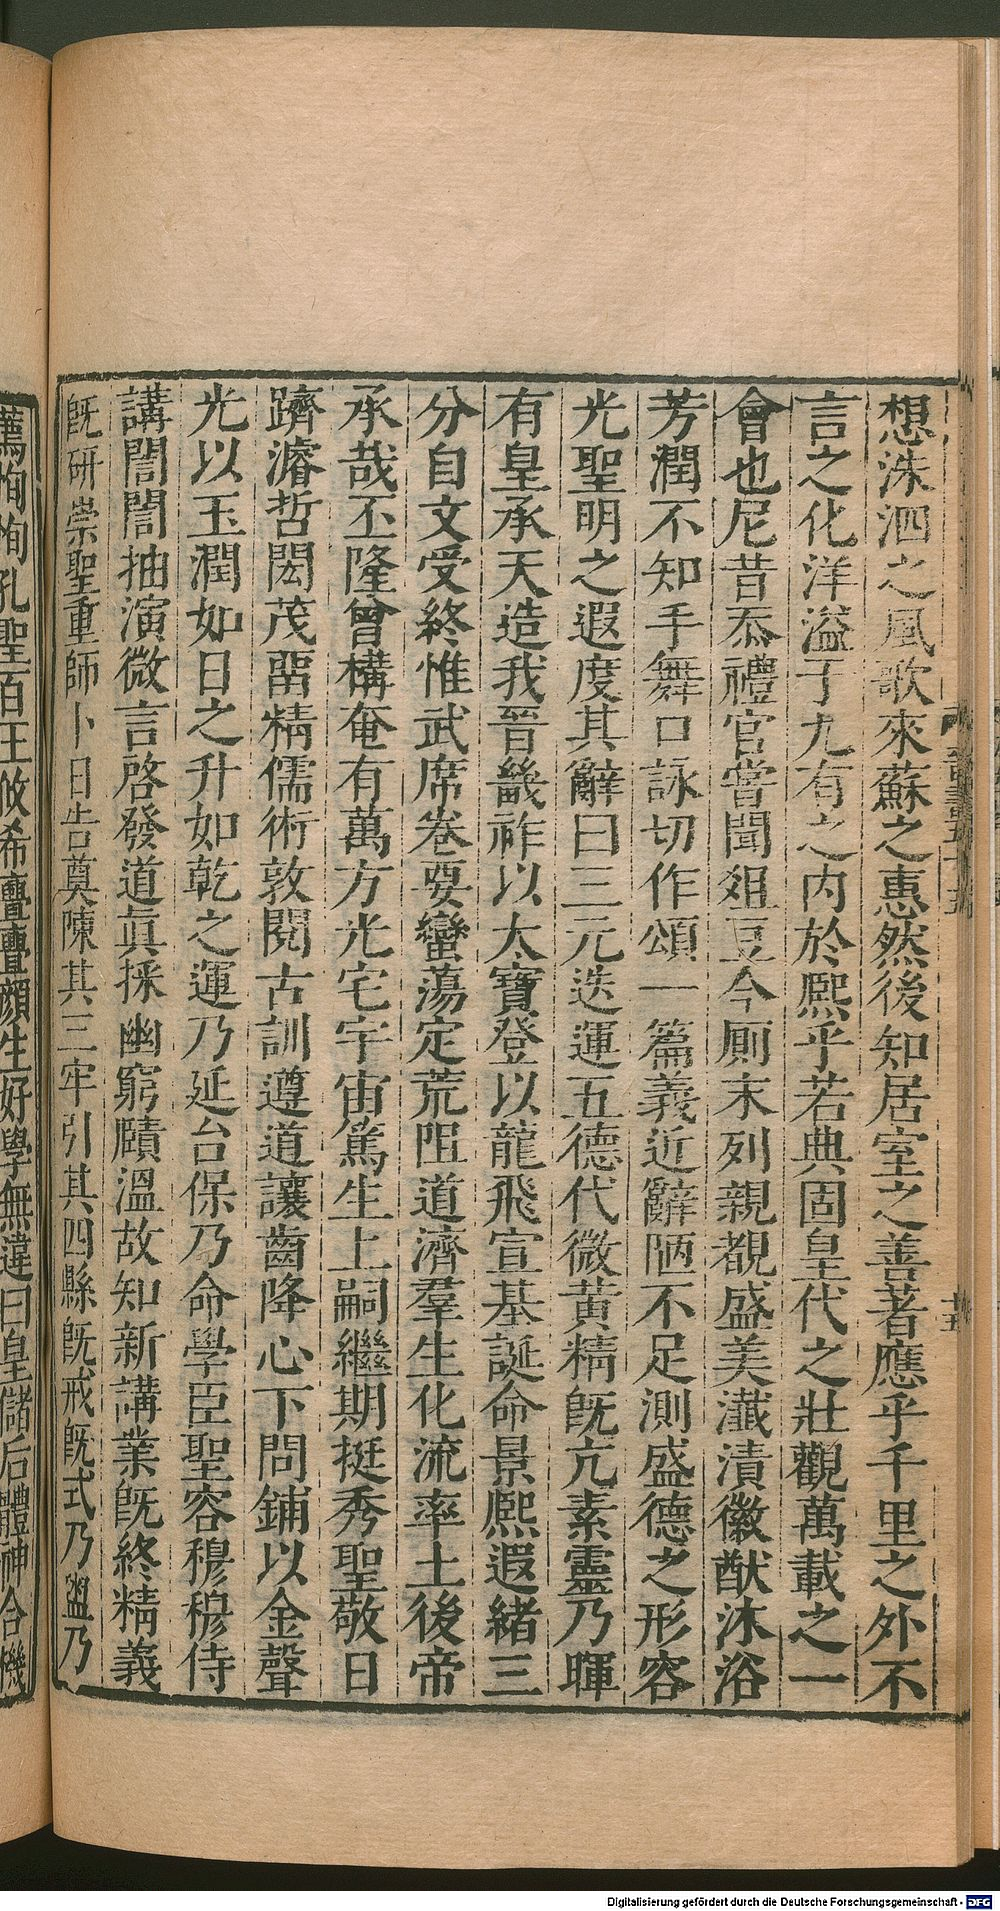 想洙泗之風歌來蘇之惠然後知居室之善著應乎千里之外不
言之化洋溢于九有之内於熙乎若典固皇代之壯觀萬載之一
會也尼昔忝禮官嘗聞俎豆今厠末列親覩盛美瀸漬徽猷沐浴
芳潤不知手舞口詠切作頌一篇義近辭陋不足測盛德之形容
光聖明之遐度其辭曰三元迭運五德代微黃精旣亢素靈乃暉
有皇承天造我晉畿祚以大寶登以龍飛宣基誕命景熙遐緒三
分自文受終惟武席卷要蠻蕩定荒阻道濟羣生化流率土後帝
承哉丕隆曾構奄有萬方光宅宇宙篤生上嗣繼期挺秀聖敬日
躋濬哲閎茂留精儒術敦閱古訓遵道讓齒降心下問鋪以金聲
光以玉潤如日之升如乾之運乃延台保乃命學臣聖容穆穆侍
講誾誾抽演微言啓發道眞採幽窮賾溫故知新講業旣終精義
旣研崇聖重師卜日告奠陳其三牢引其四縣旣戒旣式乃盥乃
薦恂恂孔聖百王攸希亹亹顔生好學無違曰皇儲后體神合機
Digitalisierung gefördert durch die Deutsche Forschungsgemeinschaft - DFG